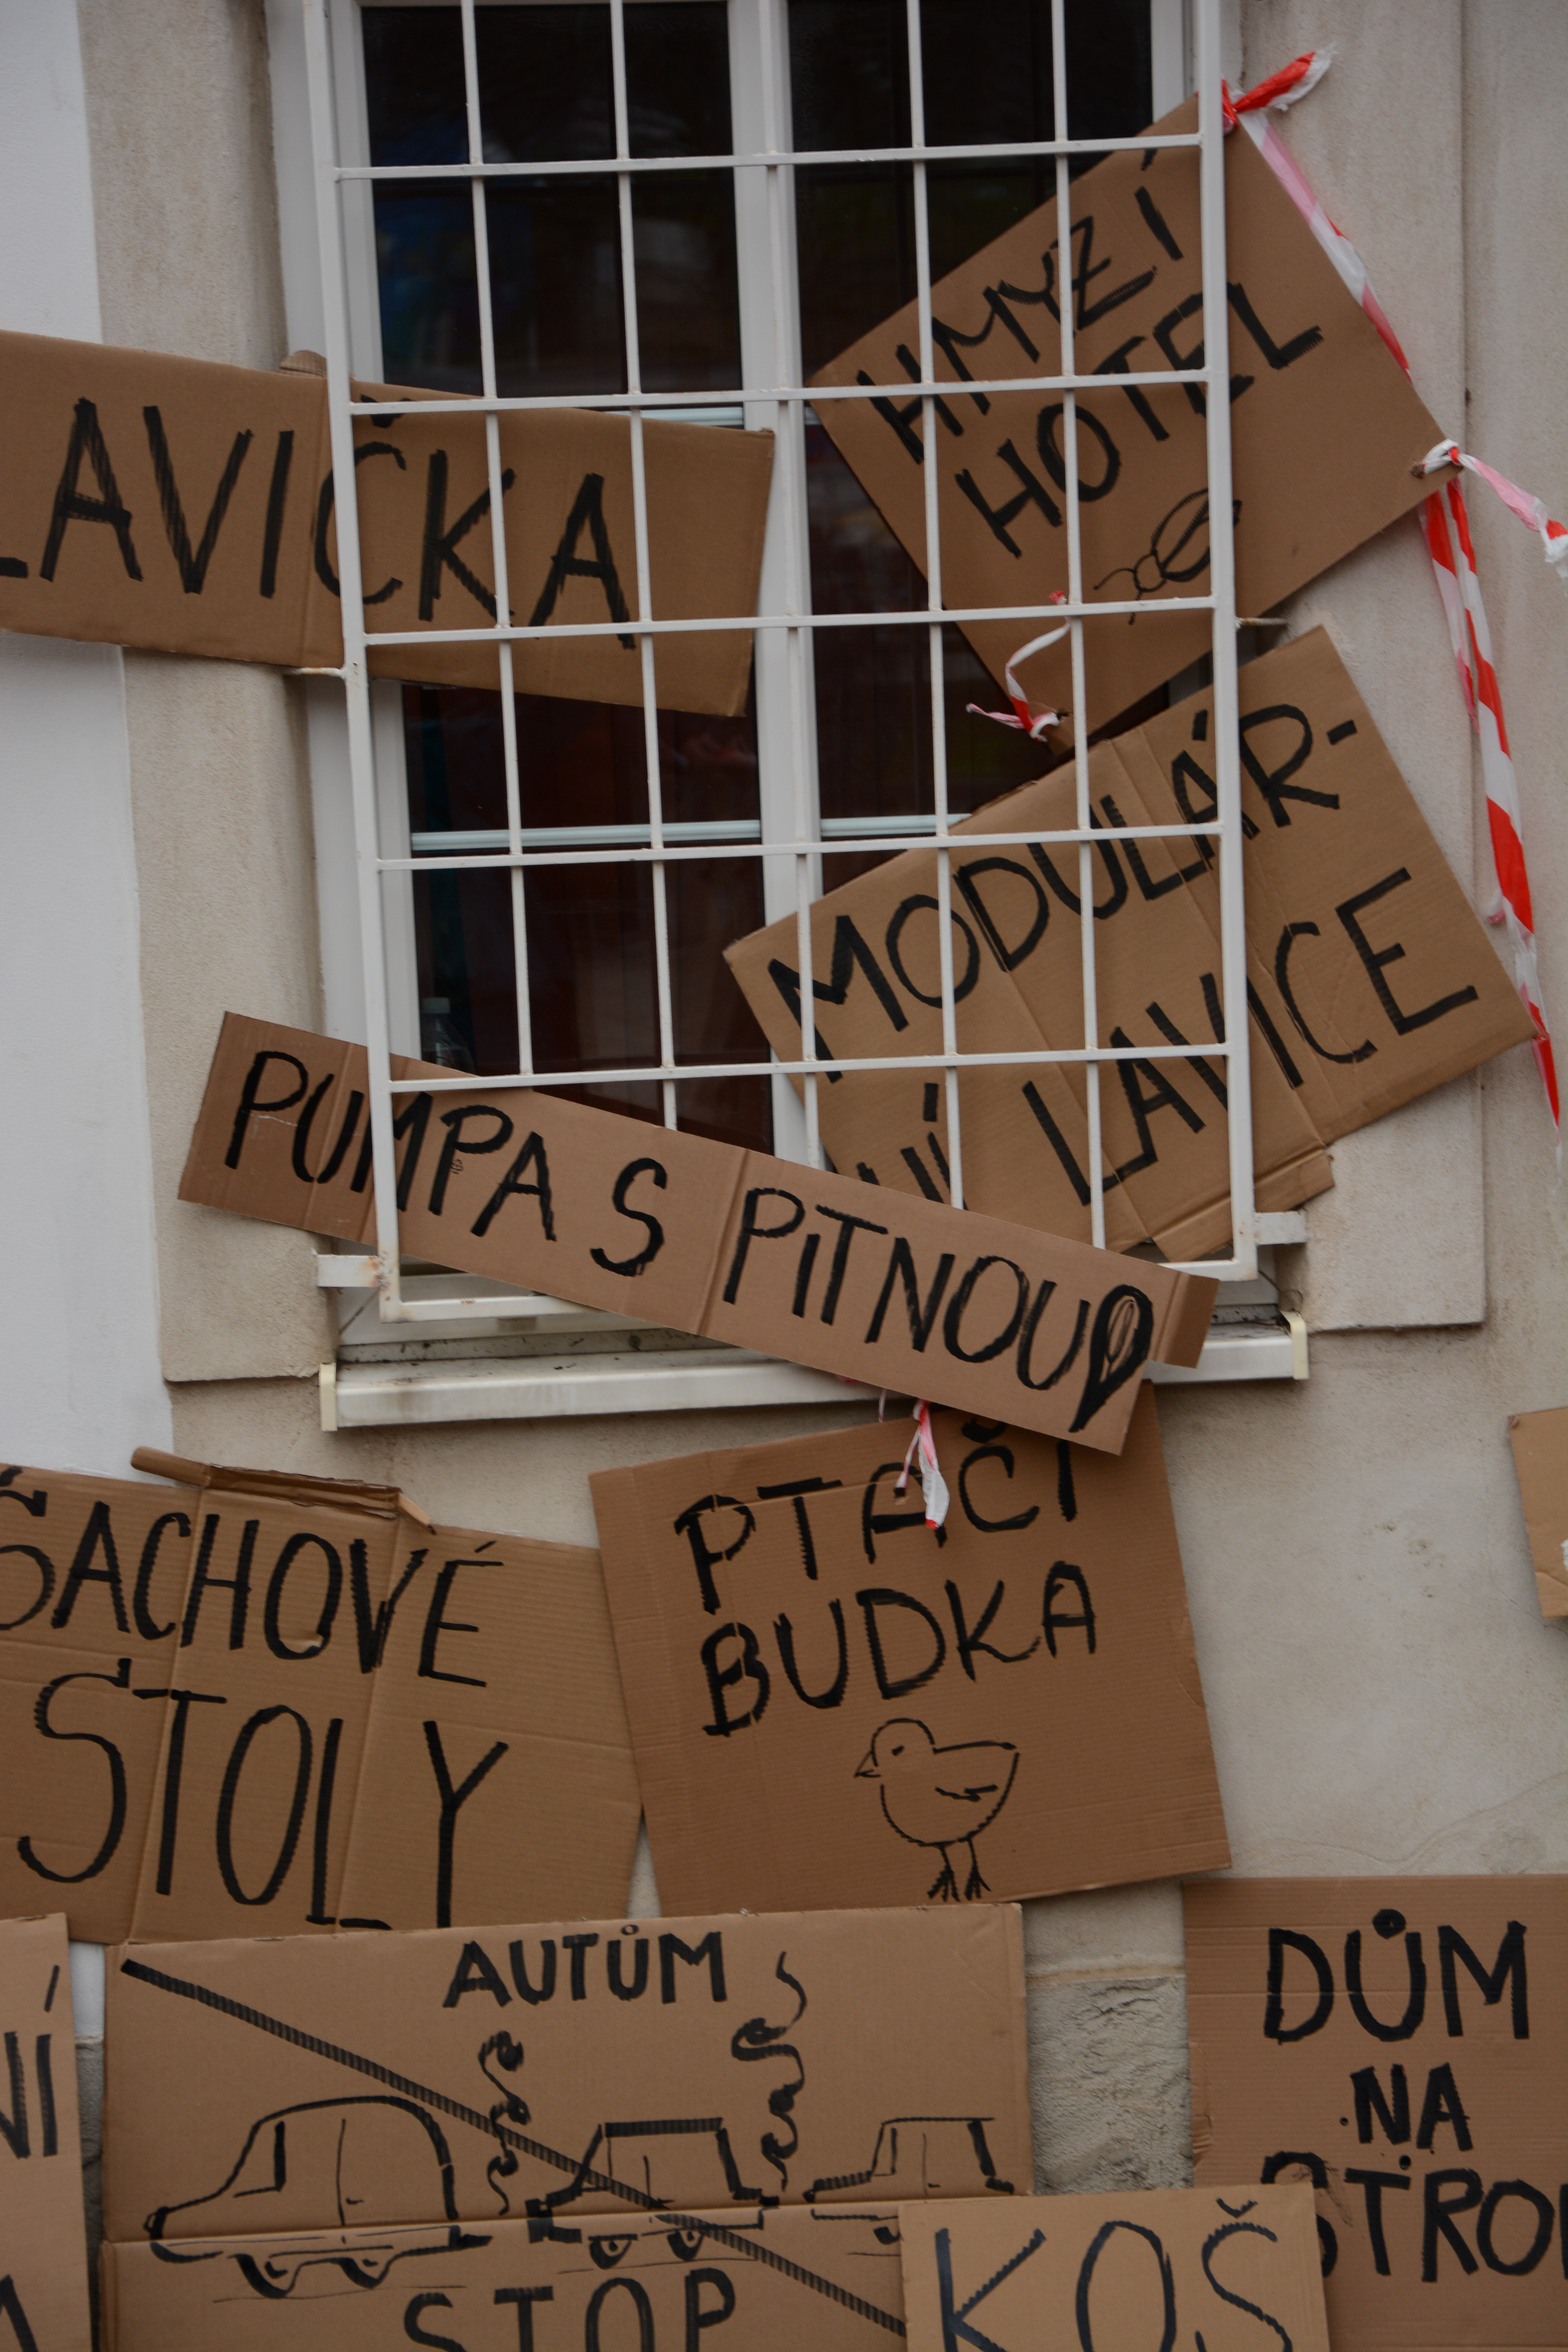 HMYZÍ
HOTEL
LAVIČKA
MODULÁR-
NÍ LAVICE
PUMPA S PITNOU
PTAČÍ
BUDKA
ŠACHOVÉ
STOLY
AUTŮM
STOP
DŮM
NA
STRO
KOŠ
NÍ